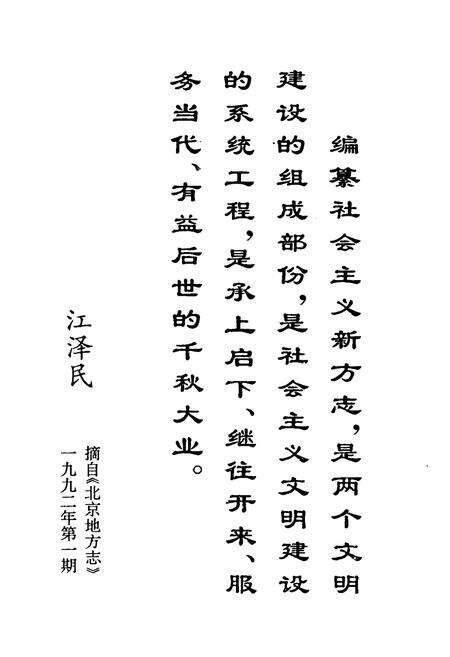 编纂社会主义新方志，是两个文明
建设的组成部份，是社会主义文明建设
的系统工程，是承上启下、继往开来、服
务当代、有益后世的千秋大业。
江泽民
摘自《北京地方志》
一九九二年第一期